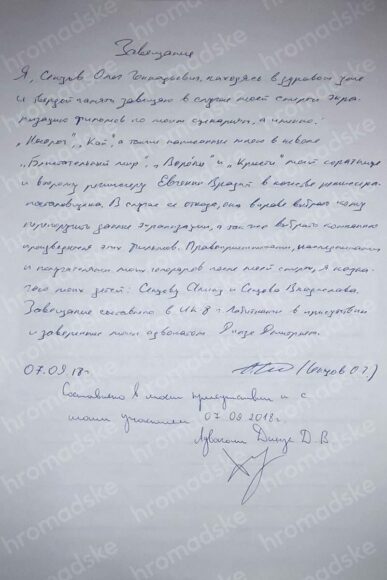 Завещание
Я, Сенцов Олег Геннадьевич, находясь в здравом уме
и твердой памяти завещаю в случае моей смерти экра-
низацию фильмов по моим сценариям, а именно:
„Носорог", „Кай", а также написанные мною в неволе
мой соратнице
и второму режиссеру Евгении Врадий в качестве режиссера-
постановщика. В случае ее отказа, она вправе выбрать кому
перепоручить данные экранизации, а так же выбрать компанию
производителя этих фильмов. Правопреемниками, наследниками
и получателями моих гонораров после моей смерти, я назна-
чаю моих детей: Сенцову Алину и Сенцова Владислава.
Завещание составлено в ИК-8 г. Лабытнанги в присутствии
и заверенное моим адвокатом Динзе Дмитрием.
07.09.18г. (Сенцов О.Г.)
Составлено в моем присутствии и с
моим участием 07.09.2018г.
Адвокат Динзе Д.В
hromadske